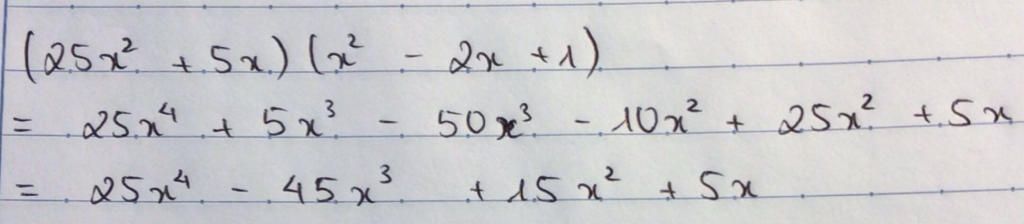 (25x² + 5x)(x² - 2x + 1)
= 25x⁴ + 5x³ - 50x³ - 10x² + 25x² + 5x
= 25x⁴ - 45x³ + 15x² + 5x